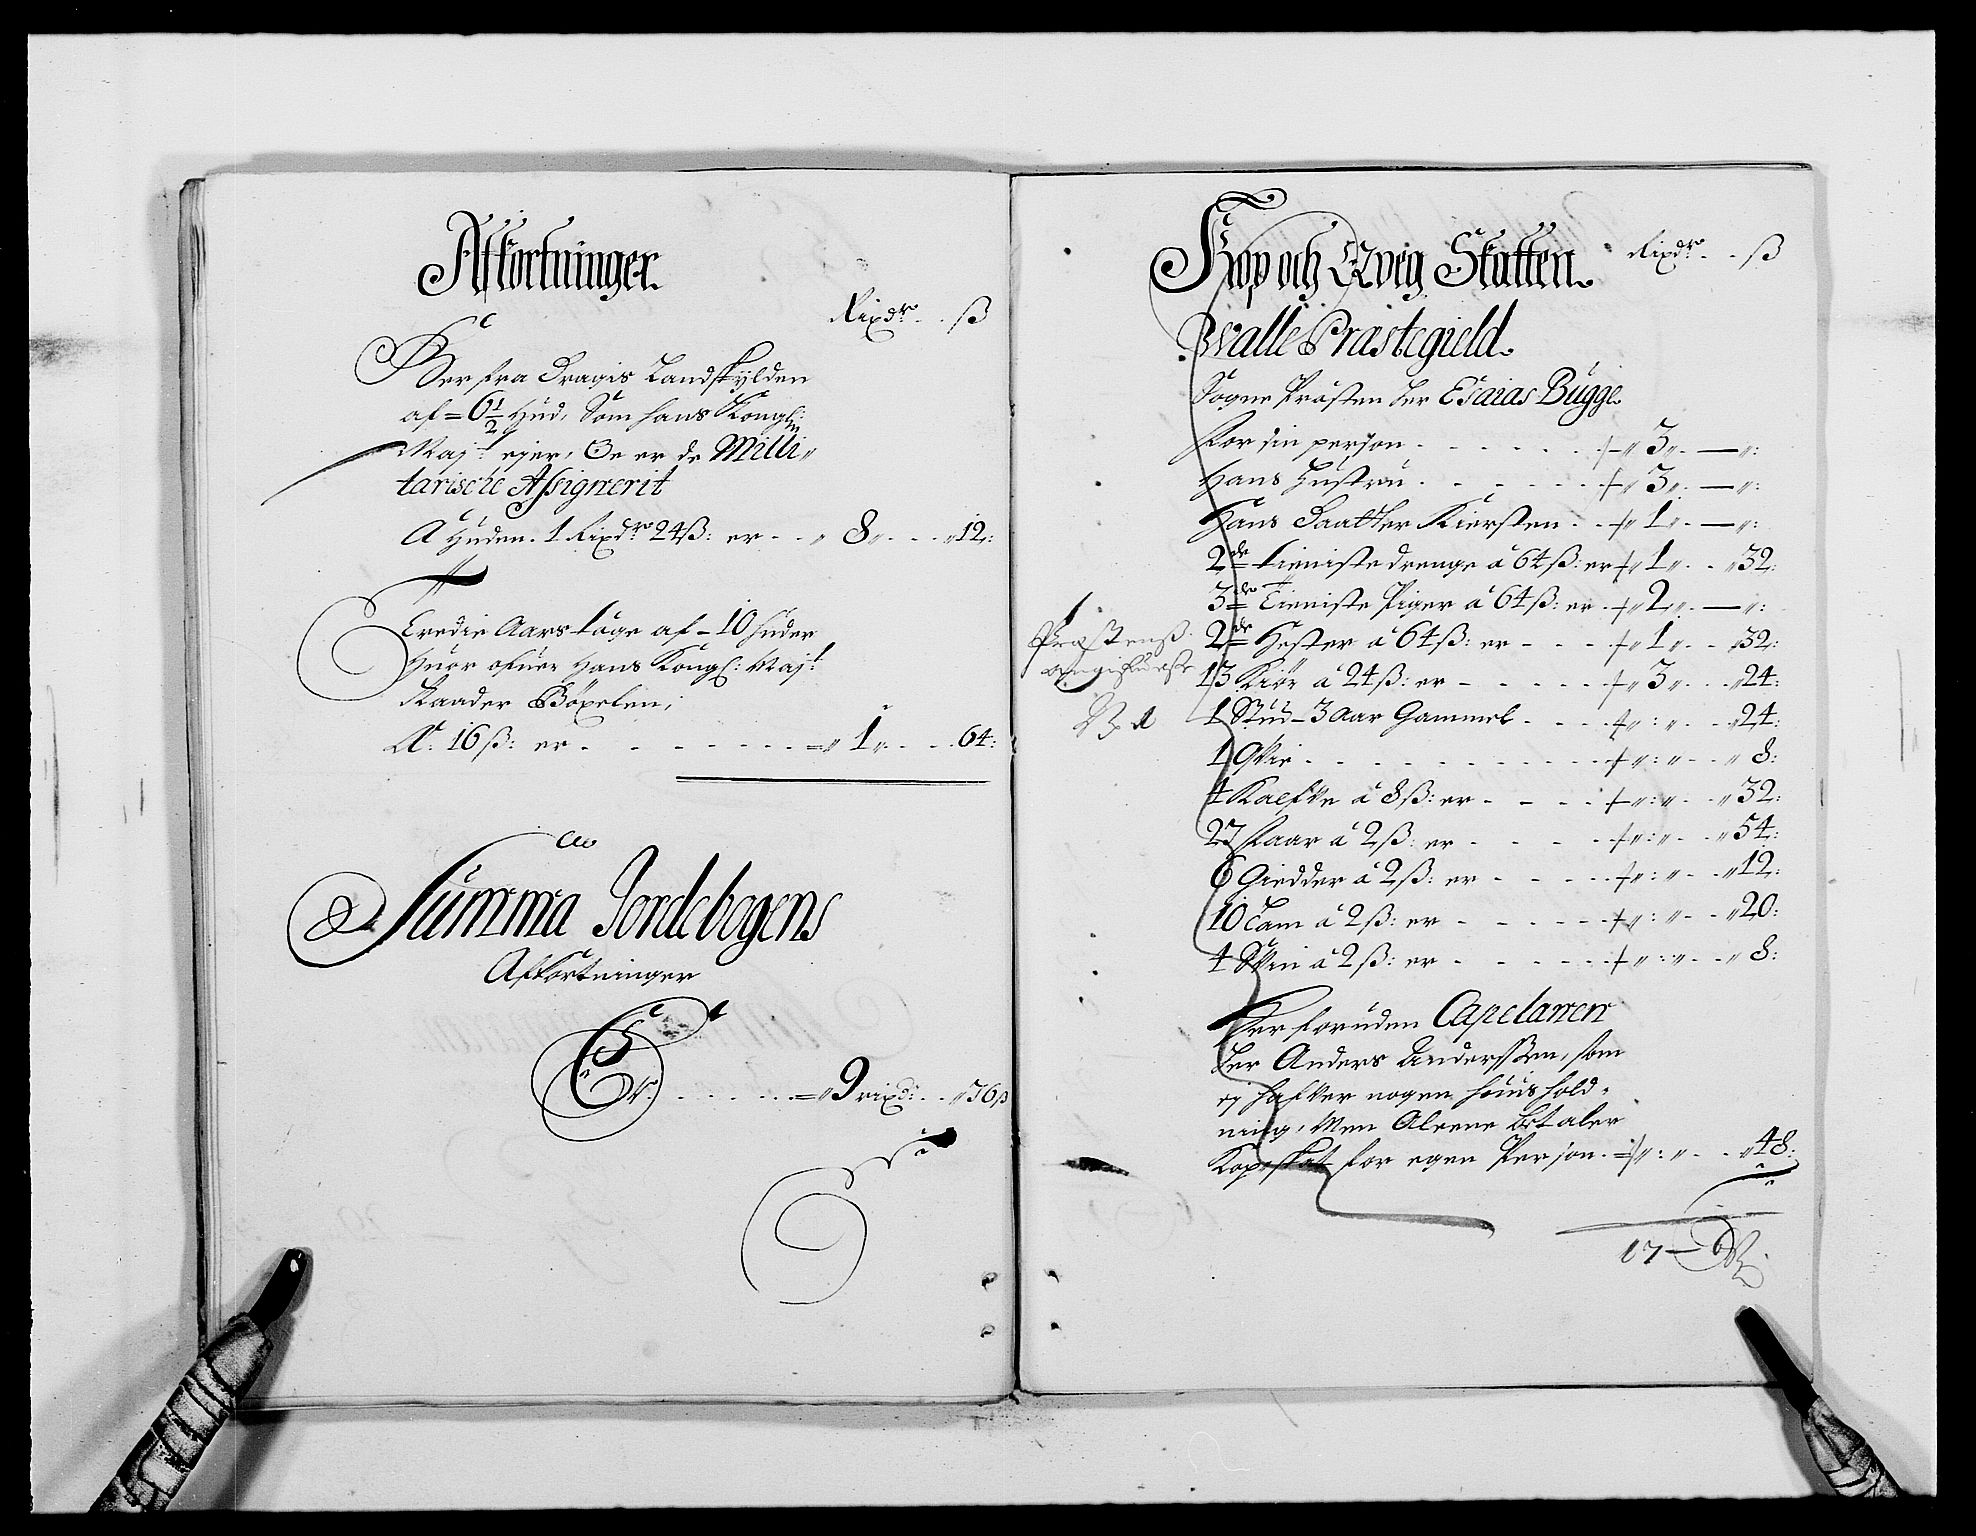 Affkortninger.
Rixdr. . ß
Her fra Dragis Landskylden
af = 6 1/2 Hud, Som hans Kongl:
Maj:t ejer, Oc er de Milli„
tarische Assignerit
A Huden. 1 Rixdr 24ß: er - . „ 8 „ . . . „12:
Tredie Aars tage af - 10 huder
Huor ofuer Hans Kongl: Maj:t
Raader Böxelen;
A: 16 ß: er . . - - - - - = „ 1 „ . . . . 64:
Summa Jordebogens
Afkortninger
Er. . . . . . = „ 9 rixd: . . „76ß
Kop och Qveg Skatten. Rixdr. . - ß
Walle Præstegield.
Sogne Præsten Her Esaias Bugge.
For sin person . - - - - - „ 3 „ . — „:
Hans Hustru . - - - - - „ 3 „ . — „:
Hans Daatter Kiersten . . „ 1 „ . — „:
2de tieniste drenge a 64 ß: er „ 1 „ . . „32:
3de Tieniste Piger a 64 ß: er . „ 2 „ . — „:
2de Hester a 64 ß: er - - - „ 1 „ . . „32:
Præstenß
angifuelse
13 Kiör a 24 ß: er - - - - . „ 3 „ . . . „24:
1 Stud - 3 aar Gammel . - - . „ : „ . . . „24:
1 Qvie . . - - - - - - - - - „ : „ - . . „ 8:
4 Kalfve a 8 ß: er - - - - . „ : „ . . „32:
27 faar a 2 ß: er - - - - - „ : „ . . . „54:
6 Giedder a 2 ß: er - - - - - „ : „ . . „12:
10 Lam a 2 ß: er - - - - - „ : „ . . „20:
4 Svin a 2 ß: er - - - - - „ : „ . . „ 8:
Her foruden Capelanen
Her Anders Anderssen, som
ej hafver nogen huushold„
ning, Men Aleene betaler
Kopskat for egen Person . = „ : „ . . . „48:
17 —